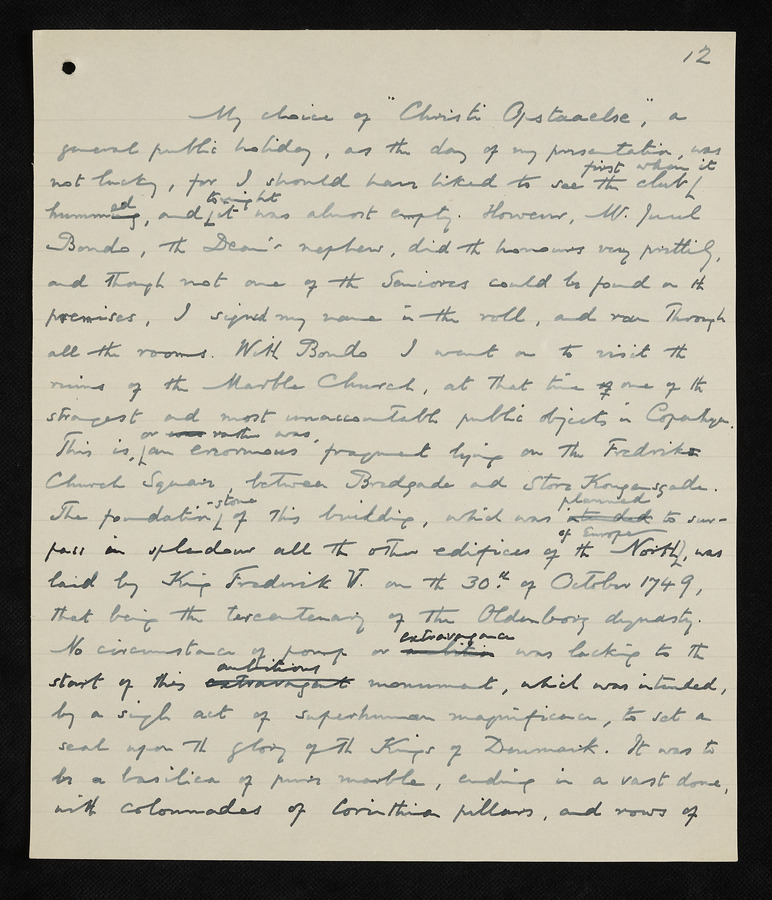 12
My choice of "Christi Opstaaelse", a
general public holiday, as the day of my presentation, was
first when it
not lucky, for I should have liked to see the club
ed tonight
humming, and it was almost empty. However, Mr. Juul
Bondo, the Dean's nephew, did the honours very prettily,
and though not one of the Seniores could be found on the
premises, I signed my name in the roll, and ran through
all the rooms. With Bondo I went on to visit the
ruins of the Marble Church, at that time one of the
strangest and most unaccountable public objects in Copenhagen.
or rather was,
This is, an enormous fragment lying on the Fredriks
Church Square, between Bredgade and Store Kongensgade.
-stone planned
The foundation of this building, which was intended to sur-
of Europe
pass in splendour all the other edifices of the North, was
laid by King Frederik V. on the 30th of October 1749,
that being the tercentenary of the Oldenborg dynasty.
extravagance
No circumstance of pomp or ambition was lacking to the
ambitious
start of this extravagant monument, which was intended,
by a single act of superhuman magnificence, to set a
seal upon the glory of the Kings of Denmark. It was to
be a basilica of pure marble, ending in a vast dome,
with colonnades of Corinthian pillars, and rows of